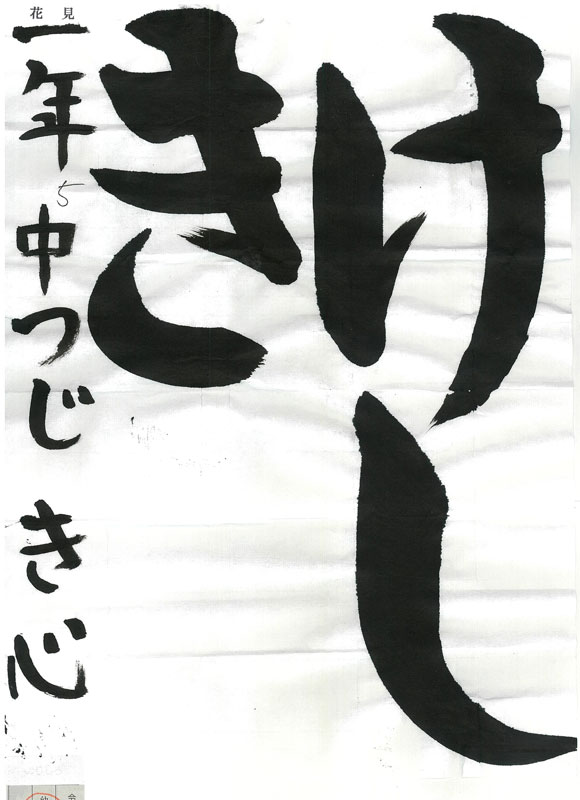 けし
き
花見
一年 中つじ き心
5